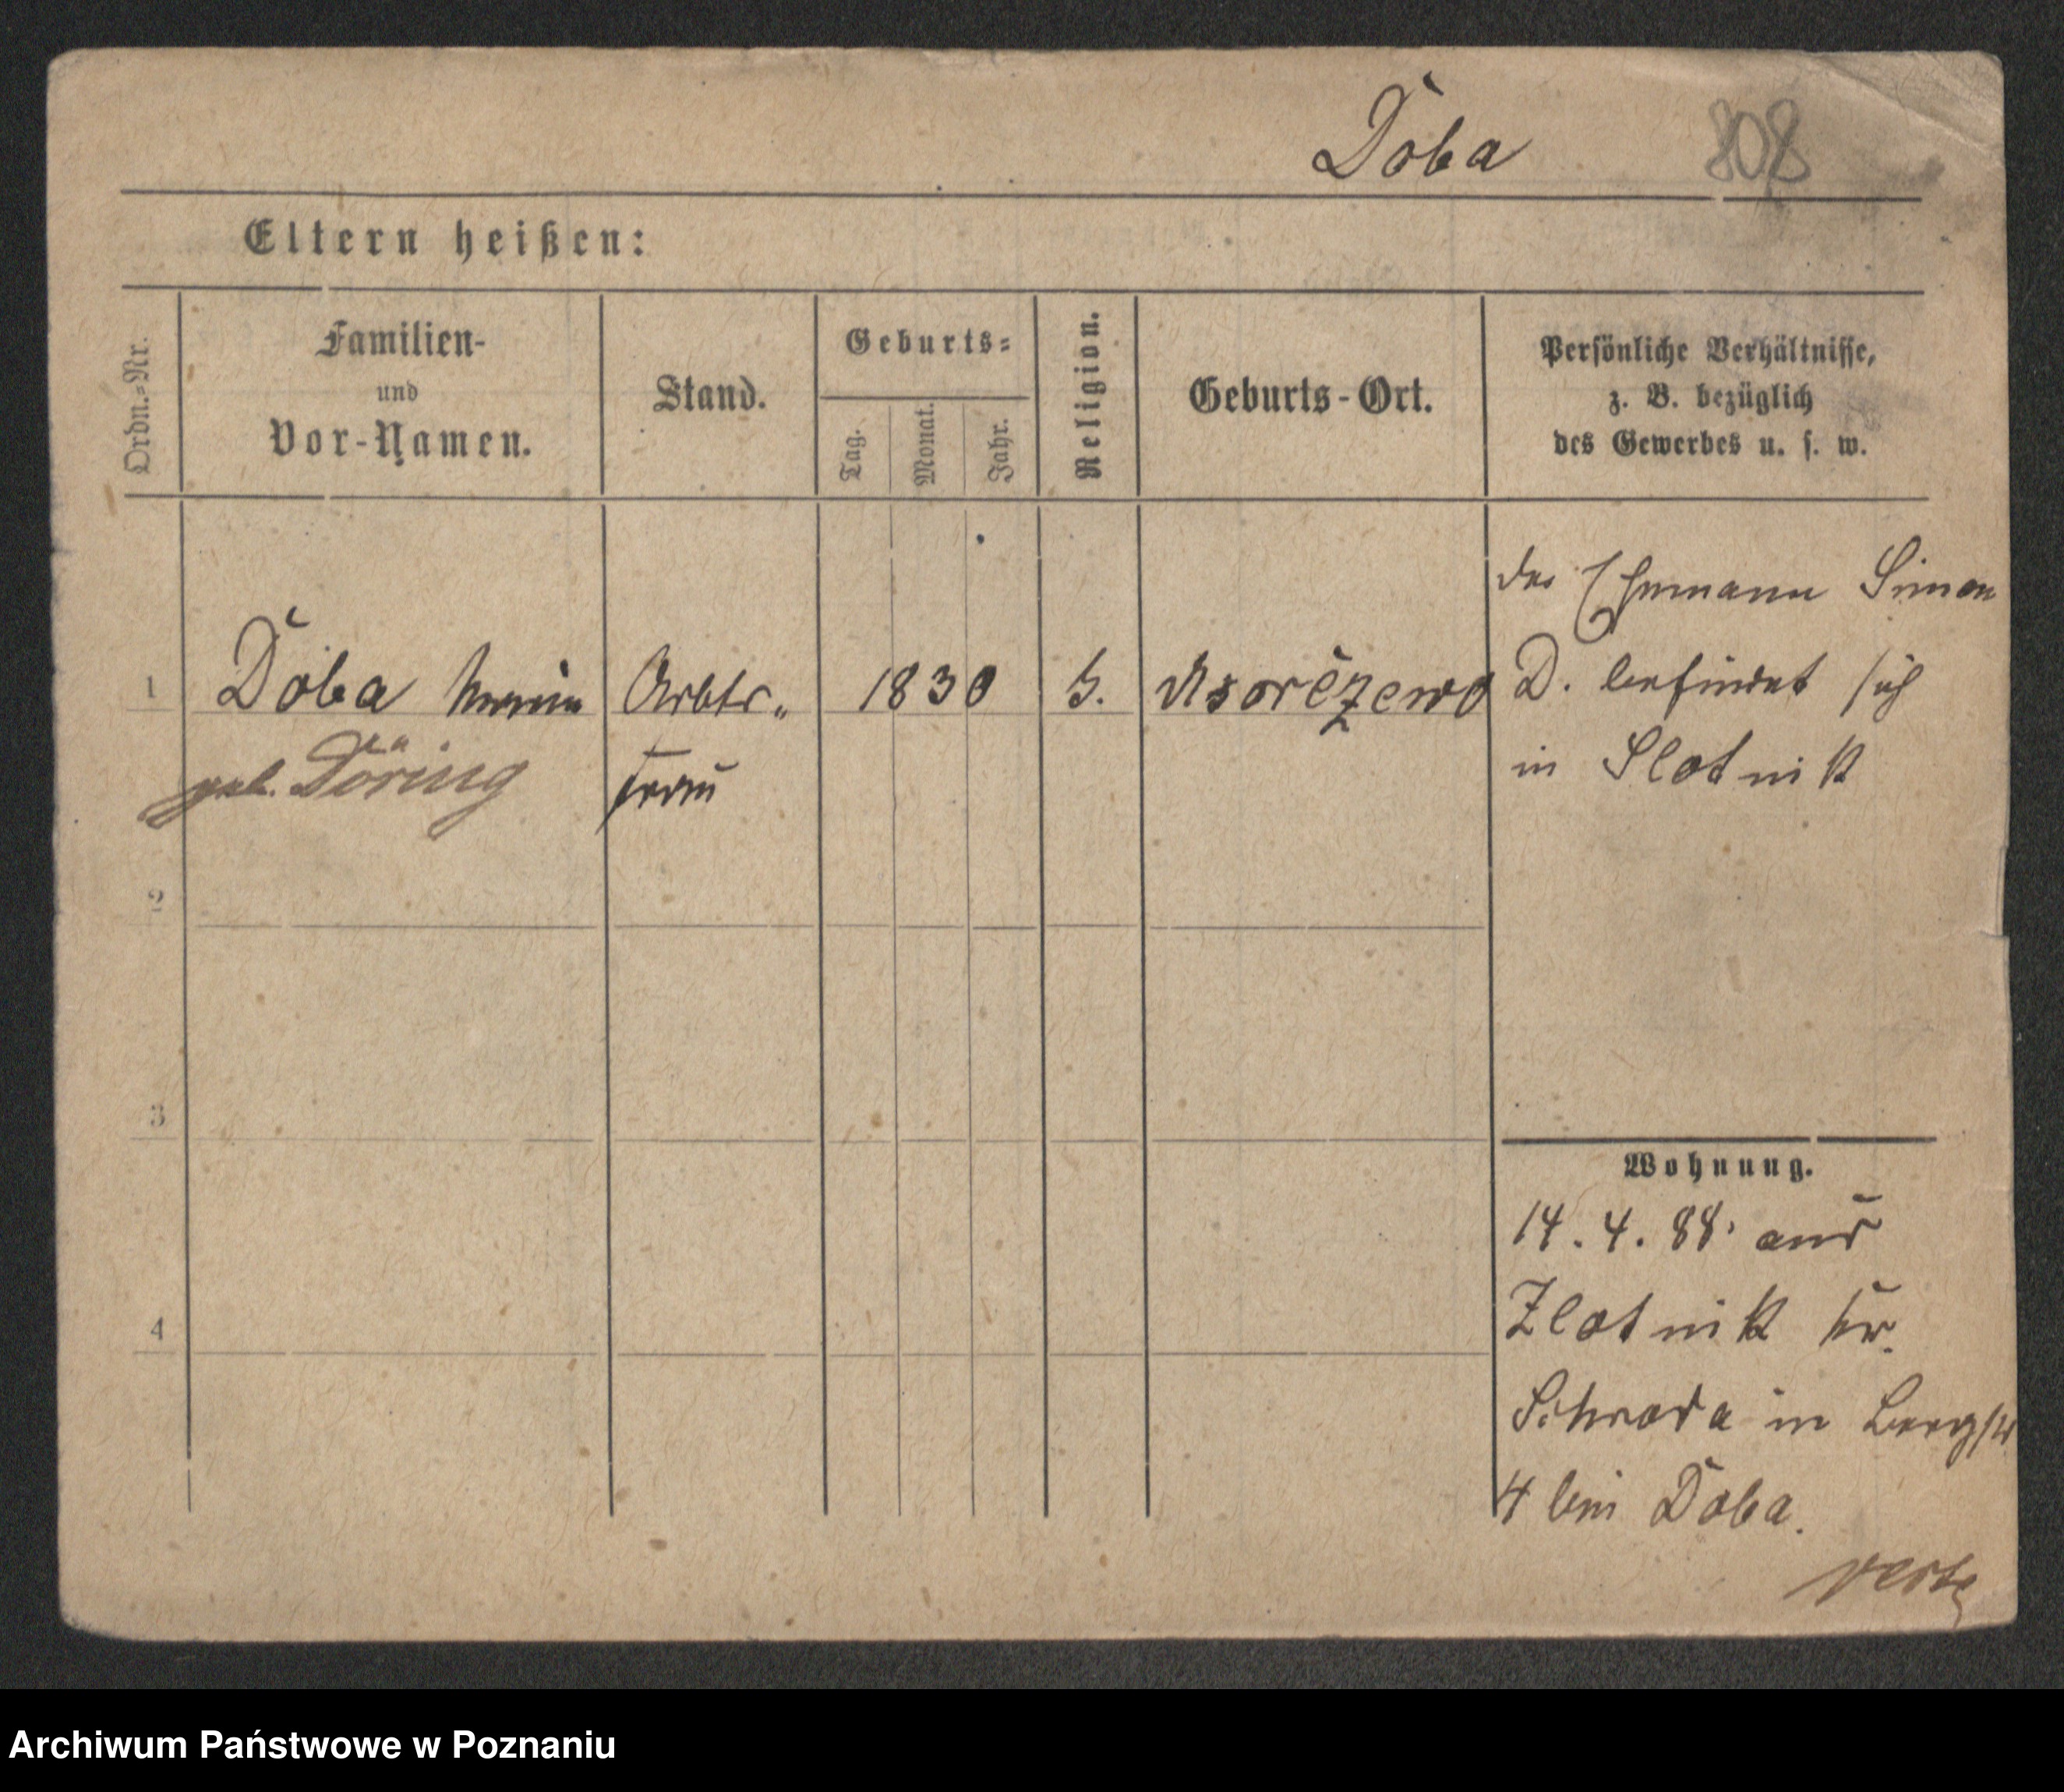 Doba 808
Eltern heißen:
Ordn.-Nr.
Familien-
und
Vor-Namen.
Stand.
Geburts-
Tag.
Monat.
Jahr.
Religion.
Geburts-Ort.
Persönliche Verhältnisse,
z. B. bezüglich
des Gewerbes u. s. w.
1 Doba Arbtr.- 1830
geb. Döring frau
der Ehemann Simon
D. befindet sich
in Slotnik
2
3
4
Wohnung.
14. 4. 88. aus
Zlotnik Kr.
Schroda in Bergstr
4 bei Doba.
verte
Archiwum Państwowe w Poznaniu